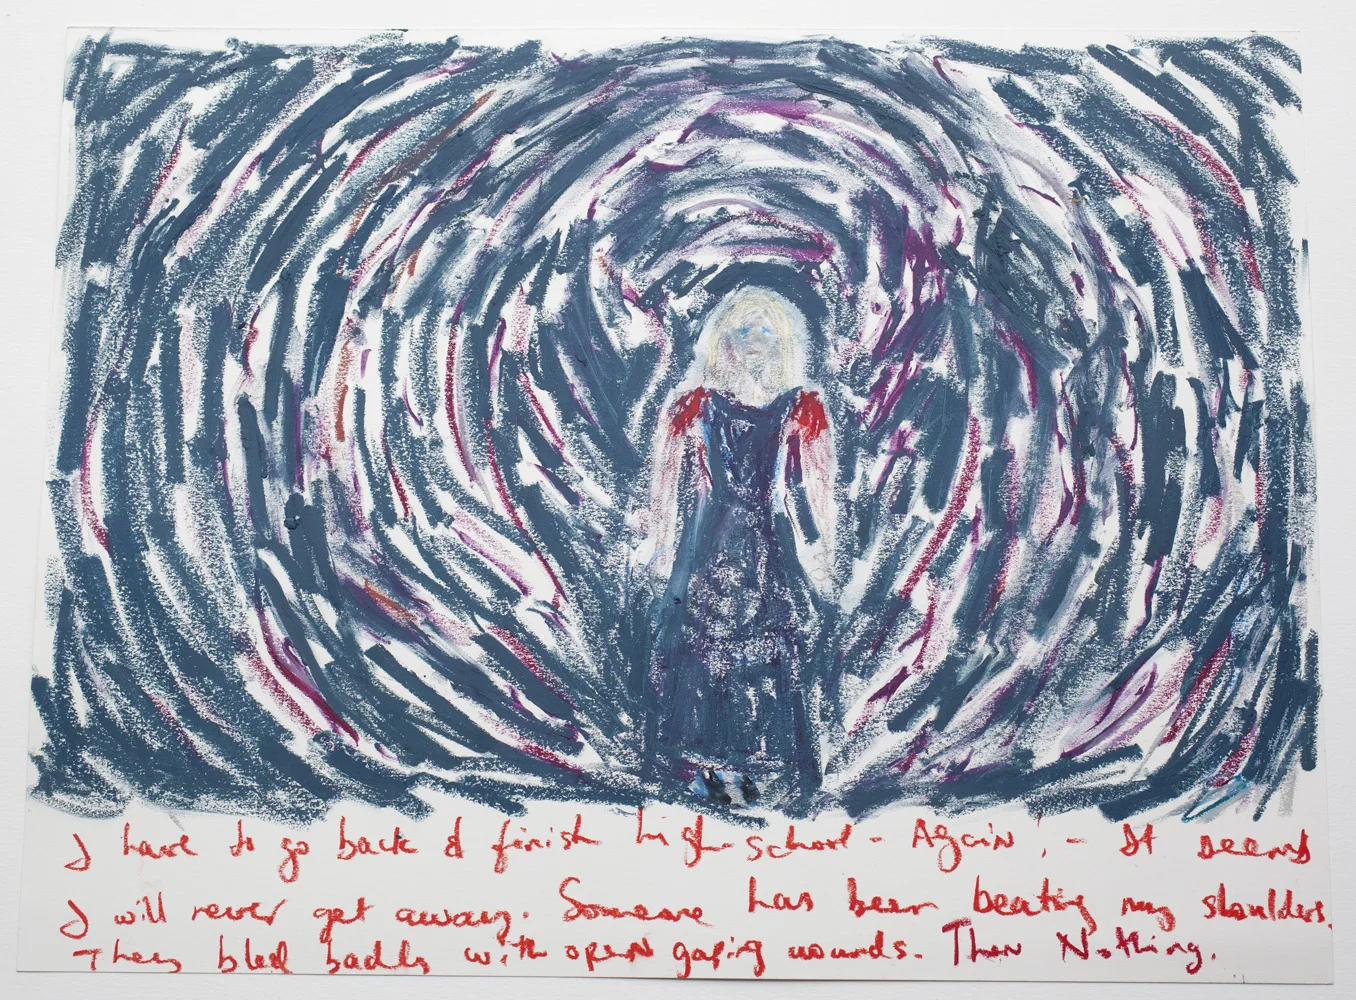 I have to go back & finish high school - Again! - It seems
I will never get away. Someone has been beating my shoulders.
They bled badly with open gaping wounds. Then Nothing.